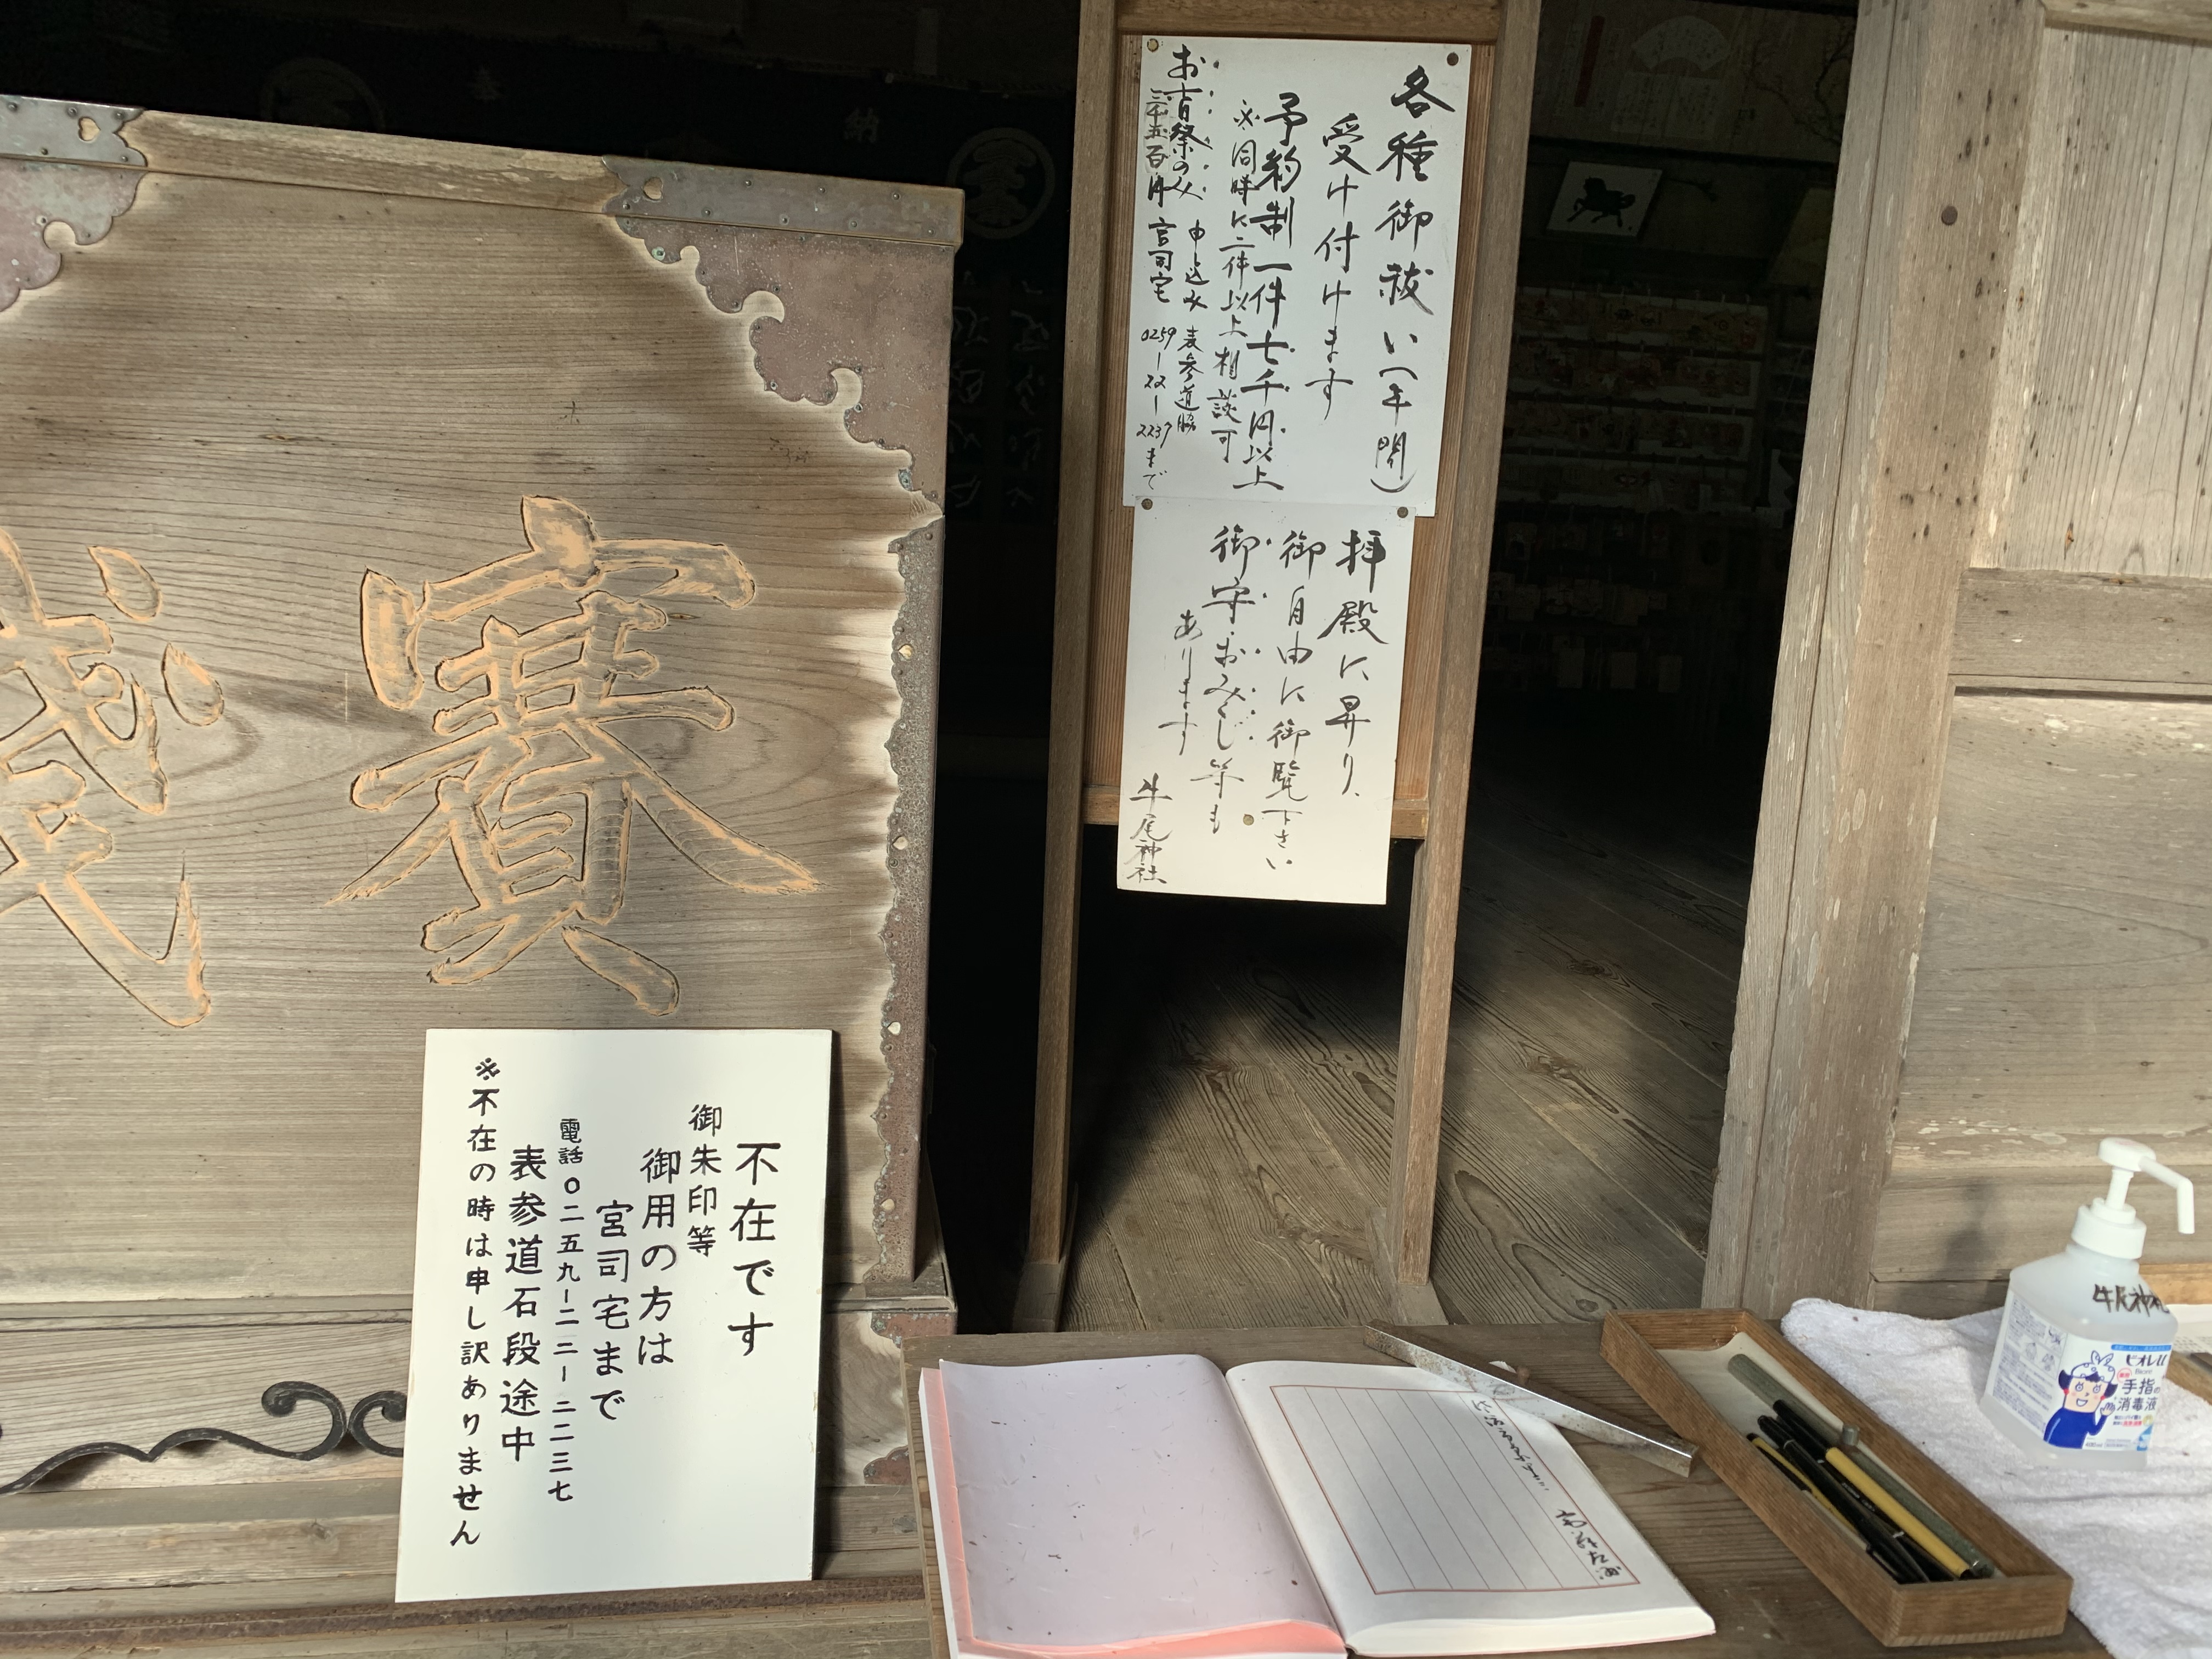 各種御祓い(年間)
受け付けます
予約制一件七千円以上
※同時に二件以上相談可
お一百祭のみ 申し込み 表参道脇
三千五百円 宮司宅 0259-22-2237まで
拝殿に昇り、
御自由に御覧下さい
御守・おみくじ等も
あります
牛尾神社
賽
銭
納
不在です
御朱印等
御用の方は
宮司宅まで
電話〇二五九-二二-二二三七
表参道石段途中
※不在の時は申し訳ありません
牛尾神社
ビオレu
手指の
消毒液